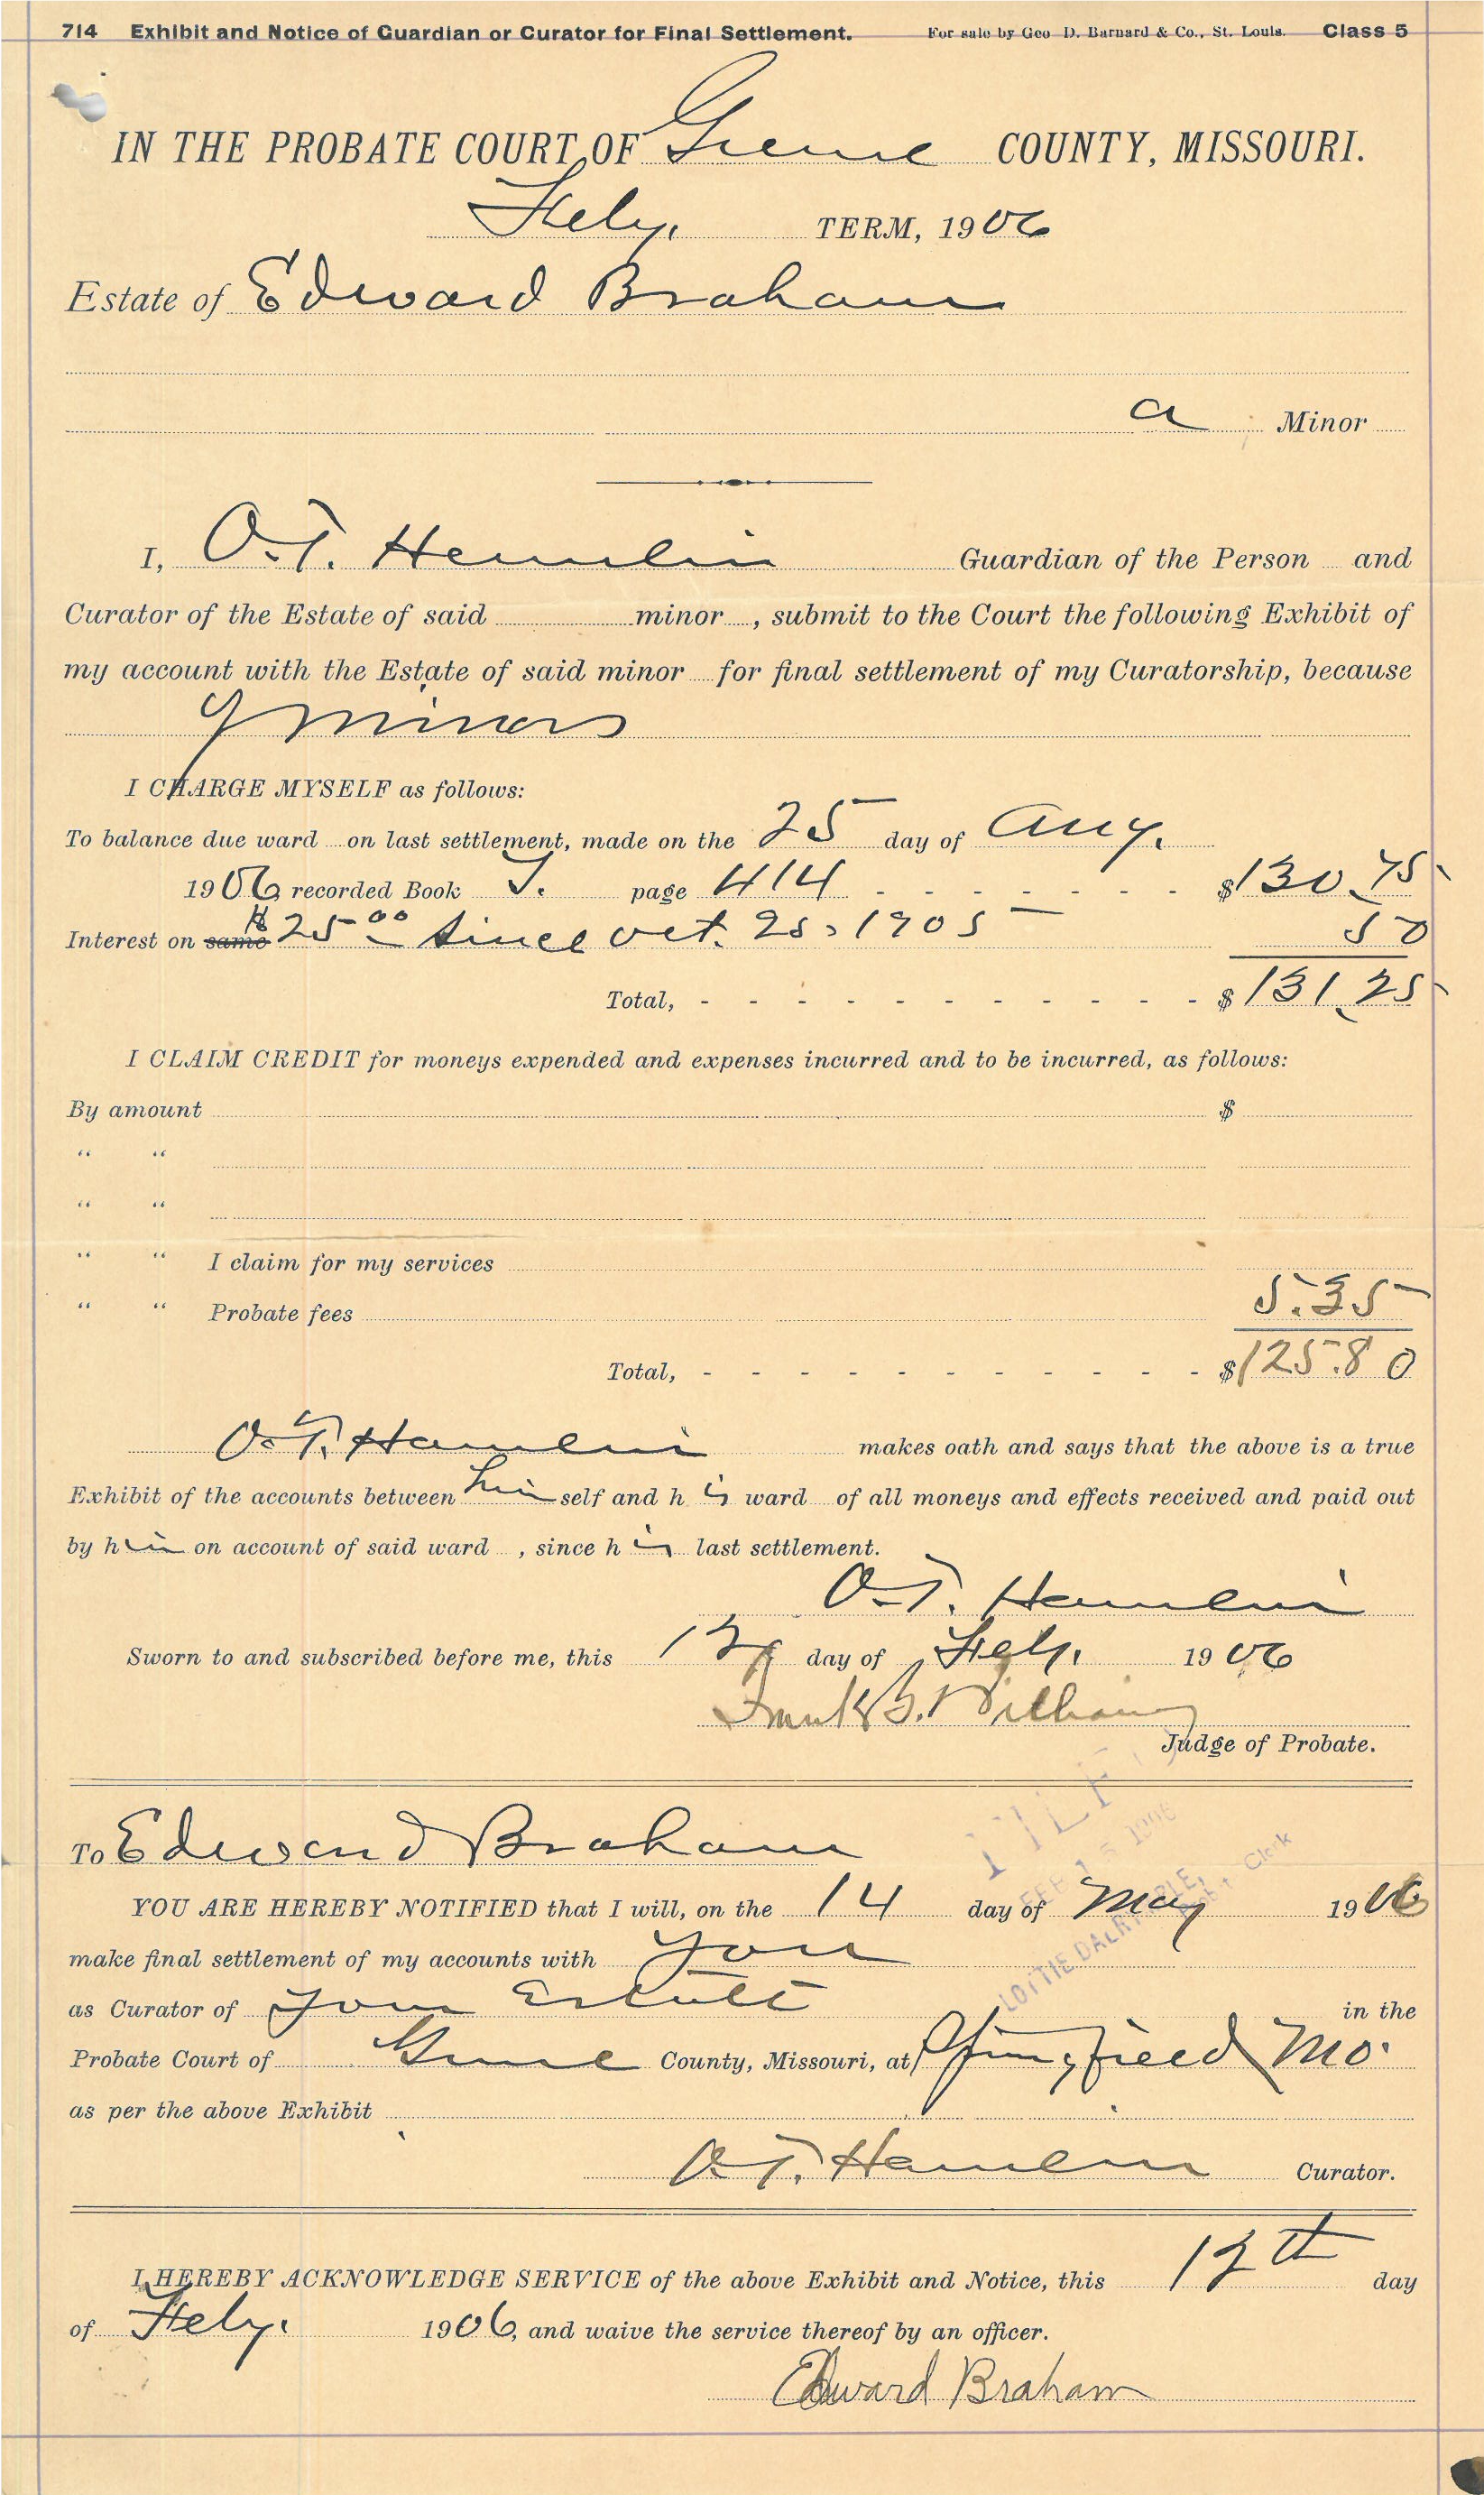 714 Exhibit and Notice of Guardian or Curator for Final Settlement. For sale by Geo D. Barnard & Co., St. Louis. Class 5
IN THE PROBATE COURT OF Greene COUNTY, MISSOURI.
Feby. TERM, 1906
Estate of Edward Braham
a Minor
I, O.T. Hamlin Guardian of the Person and
Curator of the Estate of said minor, submit to the Court the following Exhibit of
my account with the Estate of said minor for final settlement of my Curatorship, because
of minors
I CHARGE MYSELF as follows:
To balance due ward on last settlement, made on the 25 day of Aug.
1906 recorded Book T. page 414 - - - - - - - $130.75
Interest on same $25.00 since Oct. 25, 1905 50
Total, - - - - - - - - - - - $131.25
I CLAIM CREDIT for moneys expended and expenses incurred and to be incurred, as follows:
By amount $
“ “
“ “
“ “ I claim for my services
“ “ Probate fees 5.35
Total, - - - - - - - - - - - $125.80
O.T. Hamlin makes oath and says that the above is a true
Exhibit of the accounts between himself and his ward of all moneys and effects received and paid out
by him on account of said ward, since his last settlement.
O.T. Hamlin
Sworn to and subscribed before me, this day of Feby. 1906
Frank B. Williams
Judge of Probate.
FILED
FEB 1906
LOTTIE DALRYMPLE, Clerk
To Edward Braham
YOU ARE HEREBY NOTIFIED that I will, on the 14 day of May 1906
make final settlement of my accounts with you
as Curator of your Estate in the
Probate Court of Greene County, Missouri, at Springfield Mo.
as per the above Exhibit
O.T. Hamlin Curator.
I HEREBY ACKNOWLEDGE SERVICE of the above Exhibit and Notice, this 12th day
of Feby. 1906, and waive the service thereof by an officer.
Edward Braham